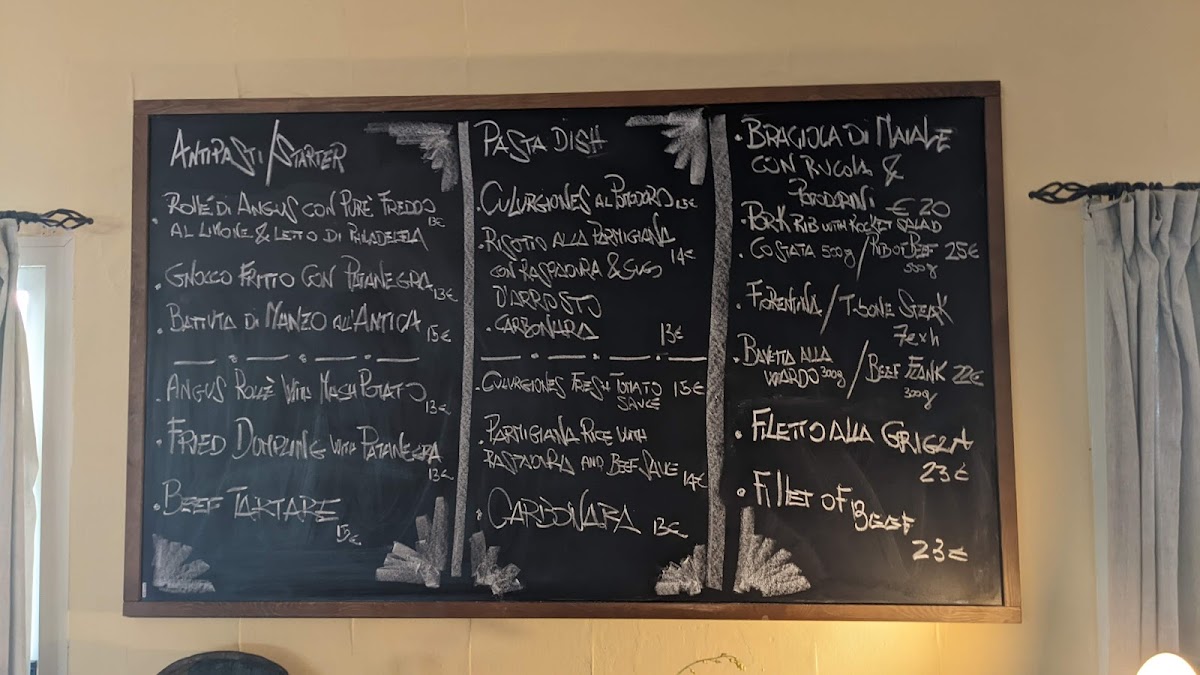 ANTIPASTI/STARTER
· ROLLÈ DI ANGUS CON PURÈ FREDDO
AL LIMONE & LETTO DI PHILADELFIA 13€
· GNOCCO FRITTO CON PATANEGRA 13€
· BATTUTA DI MANZO ALL'ANTICA 15€
· ANGUS ROLLÈ WITH MASH POTATO 13€
· FRIED DUMPLING WITH PATANEGRA 13€
· BEEF TARTARE 15€
PASTA DISH
· CULURGIONES AL POMODORO 15€
· RISOTTO ALLA PARMIGIANA 14€
CON RASPADURA & SUGO
D'ARROSTO
· CARBONARA 13€
· CULURGIONES FRESH TOMATO 15€
SAUCE
· PARMIGIANA RICE WITH
RASPADURA AND BEEF SAUCE 14€
· CARBONARA 13€
· BRACIOLA DI MAIALE
CON RUCOLA &
POMODORINI € 20
· PORK RIB WITH ROCKET SALAD
· COSTATA 500g / RIB OF BEEF 25€
500g
· FIORENTINA / T-BONE STEAK
7€xh
· BAVETTA ALLA
300g / BEEF FLANK 22€
300g
· FILETTO ALLA GRIGLIA
23€
· FILLET OF BEEF
23€